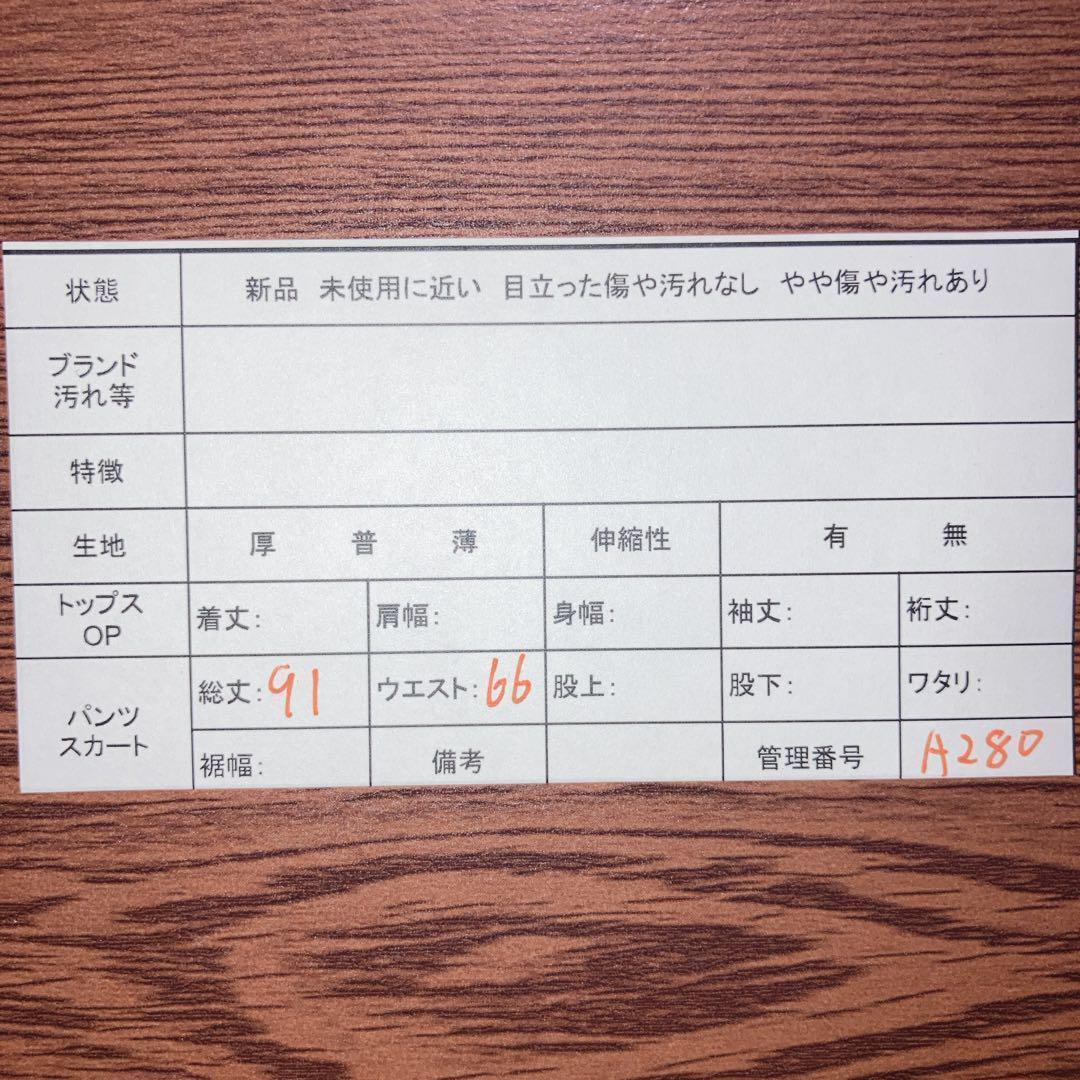 状態 新品 未使用に近い 目立った傷や汚れなし やや傷や汚れあり
ブランド
汚れ等
特徴
生地 厚 普 薄 伸縮性 有 無
トップス
OP
着丈: 肩幅: 身幅: 袖丈: 裄丈:
パンツ
スカート
総丈:91 ウエスト:66 股上: 股下: ワタリ:
裾幅: 備考 管理番号 A280